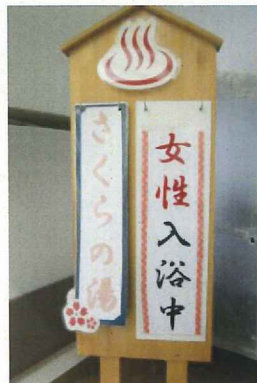 さくらの湯
女性入浴中